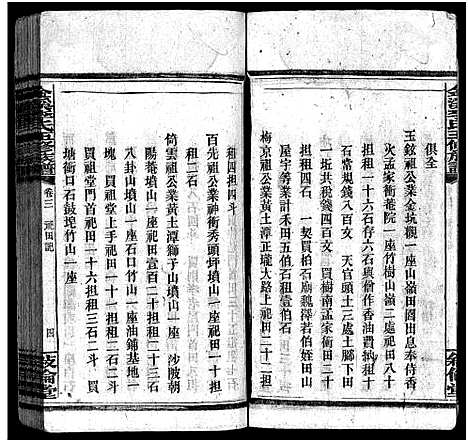 俱全
玉鉉祖公業金坑觀一座山嶺田閣出息奉侍香
火孟家衝菴院一座竹樹山嶺二處祀田八十
担租一十六石六担六石與僧作香油費納
石常規錢八百文 天官頭土三處土腳下田
一坵共税錢四百文 買樹南孟家衝田二十
屋宇等業計禾田五伯石租壹伯石
担租四石 一契買柏石廟魏澤若伯姪田山
梅京祖公業黃土潭正壠大路上祀田二十二担
租四担四斗
百先祖公業神衝秀頭坪墳山一座祀田一十担
租六石
倚雲祖公業黃土潭獅子山墳山一座 沙陂朝
陽菴墳山一座祀田壹百二十担租二十四石
八卦山墳山一座石口竹山一座油鋪基地一
塊 買祖堂上手祀田一十六担租三石二斗
買祖堂門首祀田一十六担租三石二斗 買
塘衝口石鼓坨竹山一座
卷三 祀田記
四
敘倫堂